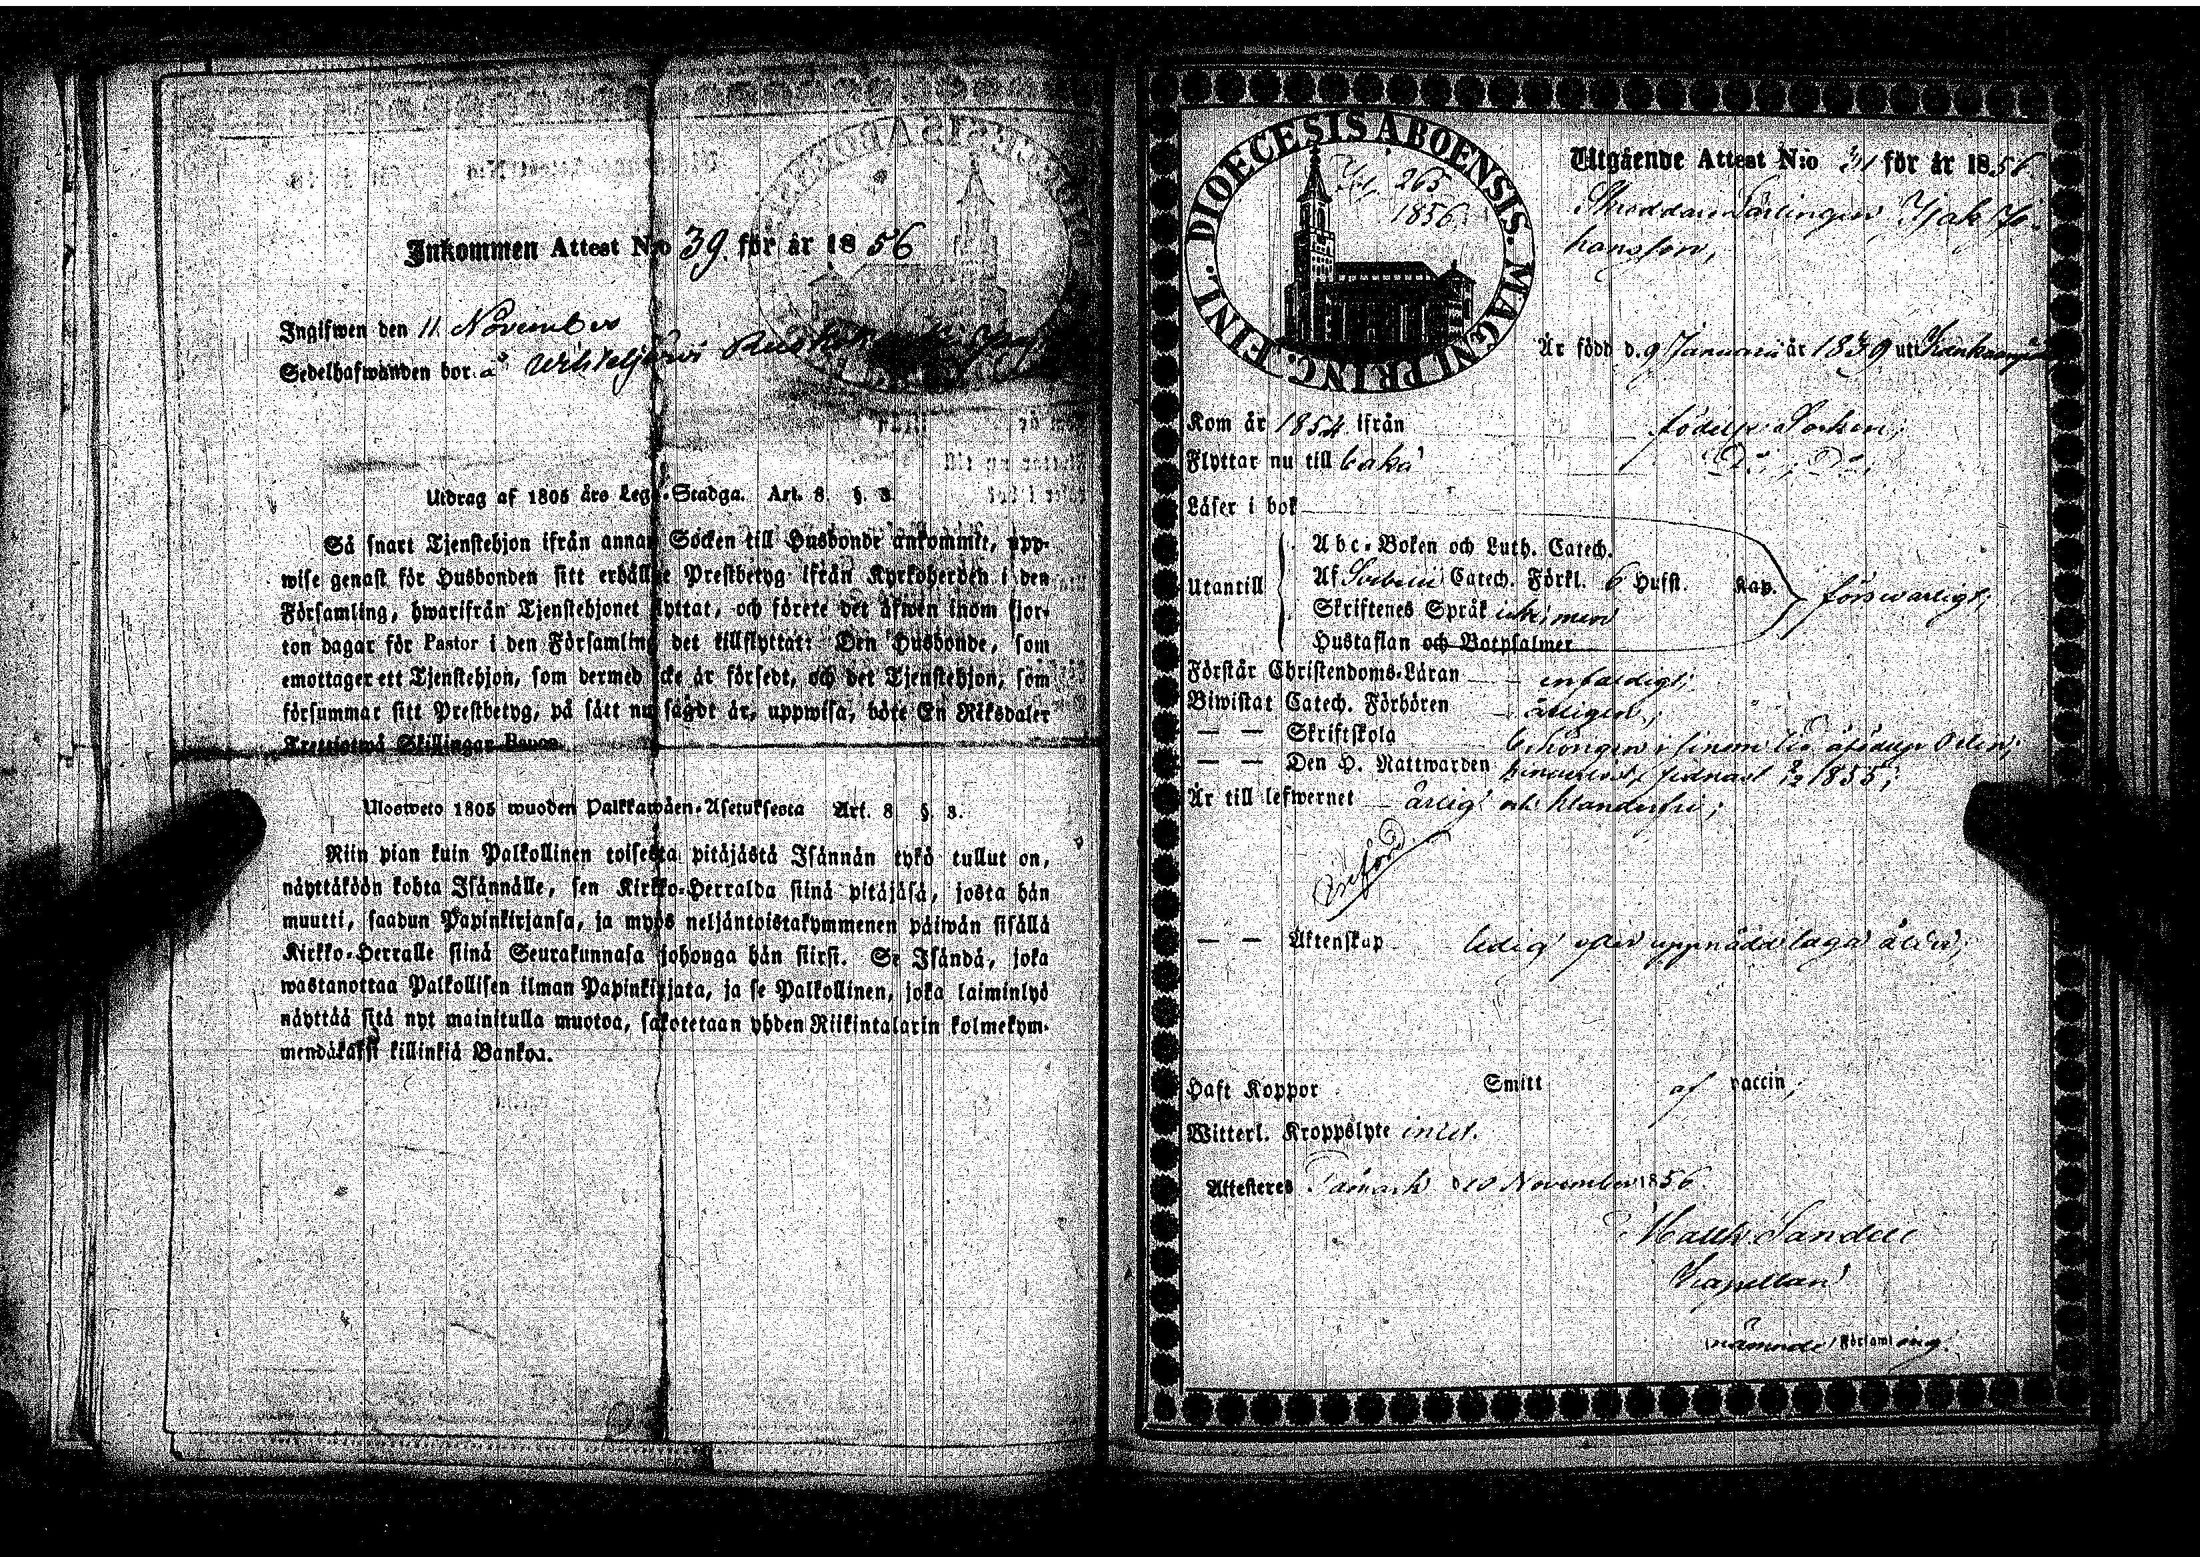 Inkommen Attest N:o 39 för år 1856
Ingifwen den 11 November
Sedelhafwanden bor å
Utdrag af 1805 års Lego-Stadga. Art. 8. §. 3.
Så snart Tjenstehjon ifrån annan Socken till Husbonde ankommit, upp-
wise genast för Husbonden sitt erhållne Prestbetyg ifrån Kyrkoherden i den
Församling, hwarifrån Tjenstehjonet flyttat, och förete det äfwen inom fjor-
ton dagar för Pastor i den Församling det tillflyttat: Den Husbonde, som
emottager ett Tjenstehjon, som dermed icke är försedt, och det Tjenstehjon, som
försummar sitt Prestbetyg, på sätt nu sagdt är, uppwisa, böte En Riksdaler
Trettiotwå Skillingar Banco.
Ulosweto 1805 wuoden Palkkawäen-Asetuksesta Art. 8 §. 3.
Niin pian kuin Palkollinen toisesta pitäjästä Isännän tykö tullut on,
näyttäköön kohta Isännälle, sen Kirkko-Herralda siinä pitäjäsä, josta hän
muutti, saadun Papinkirjansa, ja myös neljäntoistakymmenen päiwän sisällä
Kirkko-Herralle siinä Seurakunnasa johonga hän siirsi. Se Isändä, joka
wastanottaa Palkollisen ilman Papinkirjata, ja se Palkollinen, joka laiminlyö
näyttää sitä nyt mainitulla muotoa, sakotetaan yhden Riikintalarin kolmekym-
mendäkaksi killinkiä Bankoa.
DIOECESIS ABOENSIS. MAGNI PRINC. FINL.
265
1856
Utgående Attest N:o 31 för år 1856.
Skräddare Lärlingen Isak Jo-
hansson,
Är född d. 9 Januarii år 1839 uti
Kom år 1854 ifrån födelse Socken;
Flyttar nu till baka
Läser i bok
Utantill
Abc-Boken och Luth. Catech.
Af Svebelii Catech. Förkl. 6 Hufst. Kap. försvarligt;
Skriftenes Språk icke, men
Hustaflan och Botpsalmer
Förstår Christendoms-Läran enfaldigt;
Biwistat Catech. Förhören årligen;
— — Skriftskola
— — Den H. Nattwarden 1855;
Är till lefwernet ärlig och klanderfri;
— — Äktenskap ledig efter uppnådd laga ålder;
Haft Koppor Smitt af vaccin;
Witterl. Kroppslyte intet.
Attesteres d 10 November 1856.
Matth. Sandell
Kapellan
nämnde Församling.